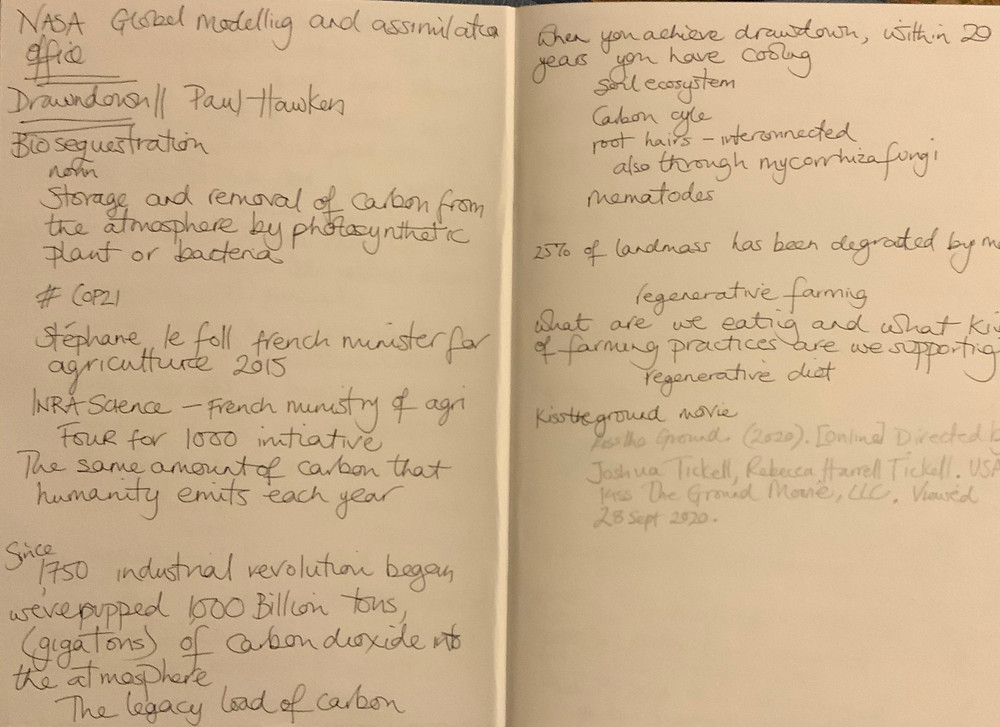 NASA Global modelling and assimilation
office
Drawndown// Paul Hawken
Bio sequestration
noun
Storage and removal of carbon from
the atmosphere by photosynthetic
plant or bacteria
# COP21
Stéphane le foll french minister for
agriculture 2015
INRA Science - French ministry of agri
FOUR for 1000 initiative
The same amount of carbon that
humanity emits each year
Since
1750 industrial revolution began
we've pupped 1000 Billion tons,
(gigatons) of carbon dioxide into
the atmosphere
The legacy load of carbon
When you achieve drawdown, within 20
years you have cooling
soil ecosystem
Carbon cycle
root hairs - interconnected
also through mycorrhiza fungi
nematodes
25% of landmass has been degraded by
regenerative farming
What are we eating and what
of farming practices are we supporting
regenerative diet
Kisstheground movie
Kiss the Ground. (2020). [Online] Directed
Joshua Tickell, Rebecca Harrell Tickell. USA
Kiss The Ground Movie, LLC. Viewed
28 Sept 2020.